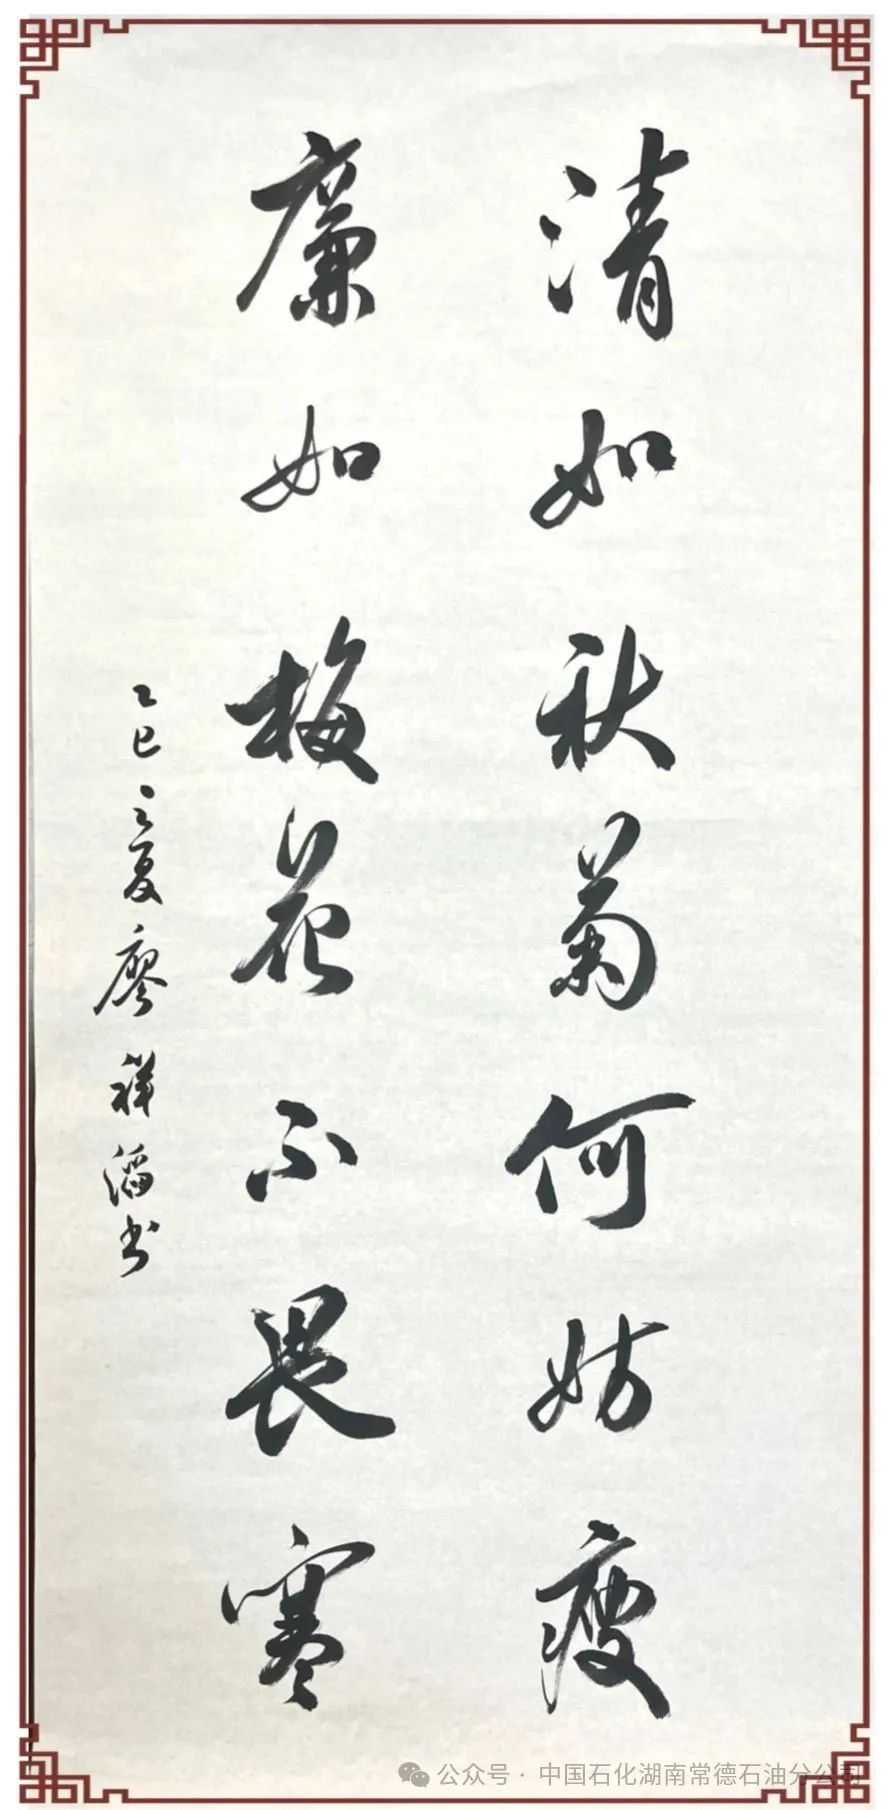 清如秋菊何妨瘦
廉如梅花不畏寒
乙巳之夏廖祥滔书
公众号·中国石化湖南常德石油分公司